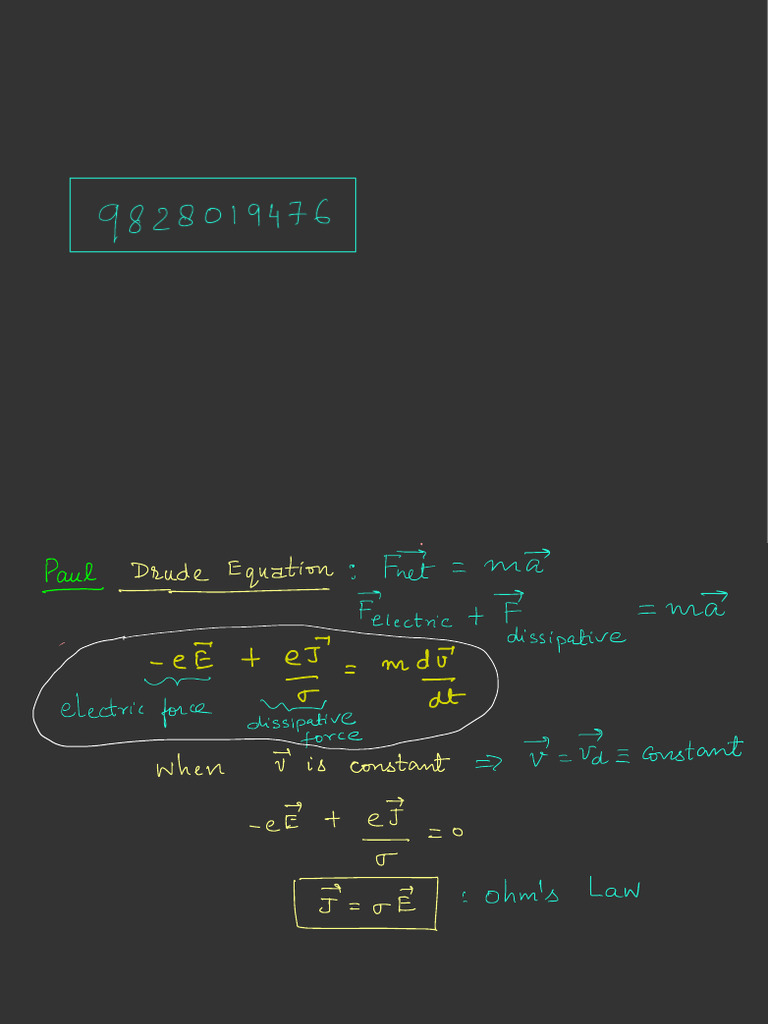 9828019476
Paul Drude Equation : F⃗net = ma⃗
F⃗electric + F⃗dissipative = ma⃗
-eE⃗ + eJ⃗/σ = m dv⃗/dt
electric force dissipative force
when v⃗ is constant ⇒ v⃗ = v⃗d ≡ constant
-eE⃗ + eJ⃗/σ = 0
J⃗ = σE⃗ : ohm's Law